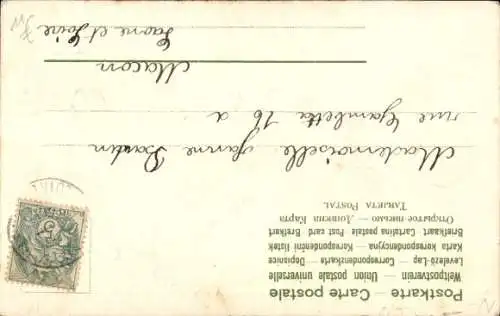 Postkarte — Carte postale
Weltpostverein — Union postale universelle
Levelező-Lap — Correspondenzkarte — Dopisnice
Karta korespondencyjna — Korrespondenční lístek
Briefkaart — Cartolina postale — Post card — Brefkort
Открытое письмо — Дописна Карта
TARJETA POSTAL
Mademoiselle Jeanne
rue Gambetta 16 a
Macon
Saone et Loire